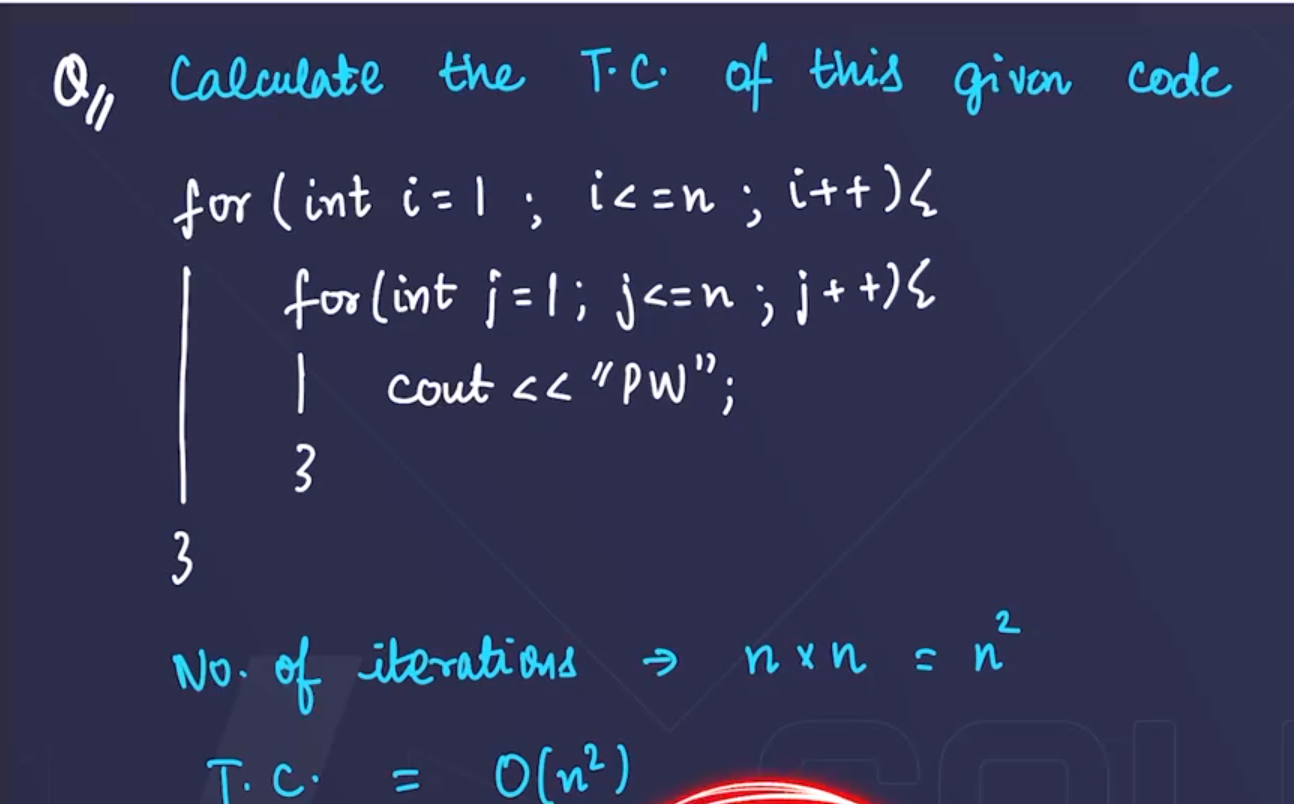 Q// Calculate the T.C. of this given code
for(int i=1; i<=n; i++){
for(int j=1; j<=n; j++){
cout<<"PW";
}
}
No. of iterations → n×n = n²
T.C. = O(n²)